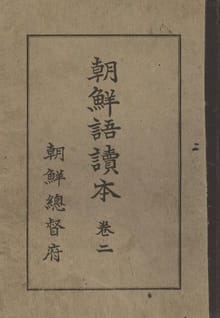 朝鮮語讀本 卷二
朝鮮總督府
二